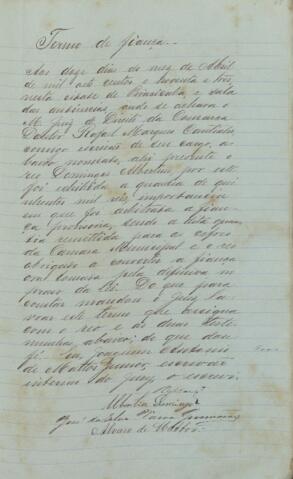 Termo de fiança.
Aos doze dias do mez de Abril
de mil oito centos e noventa e tres,
nesta cidade de Piracicaba e sala
das audiencias, onde se achava o
M. Juiz de Direito da Comarca
Doutor Rafael Marques Cantinho,
comigo escrivão de seu cargo, a-
baixo nomeado, ahi presente o
reo Domingos Albertin, por este
foi exhibida a quantia de qui
nhentos mil reis, importancia
em que foi arbitrada a fian-
ça provisoria, sendo a dita quan-
tia remettida para o cofre
da Camara Municipal e o reo
obrigado a converter a fiança
ora tomada pela difinitiva no
praso da Lei. Do que para
constar mandou o Juiz la-
vrar este termo que assigna
com o reo e as duas teste-
munhas, abaixo; do que dou
fé. Eu, Joaquim Antonio
de Mattos Junior, escrivão
interino do jury, o escrevi.
Albertin Domingos
José da Silva
Alvaro de